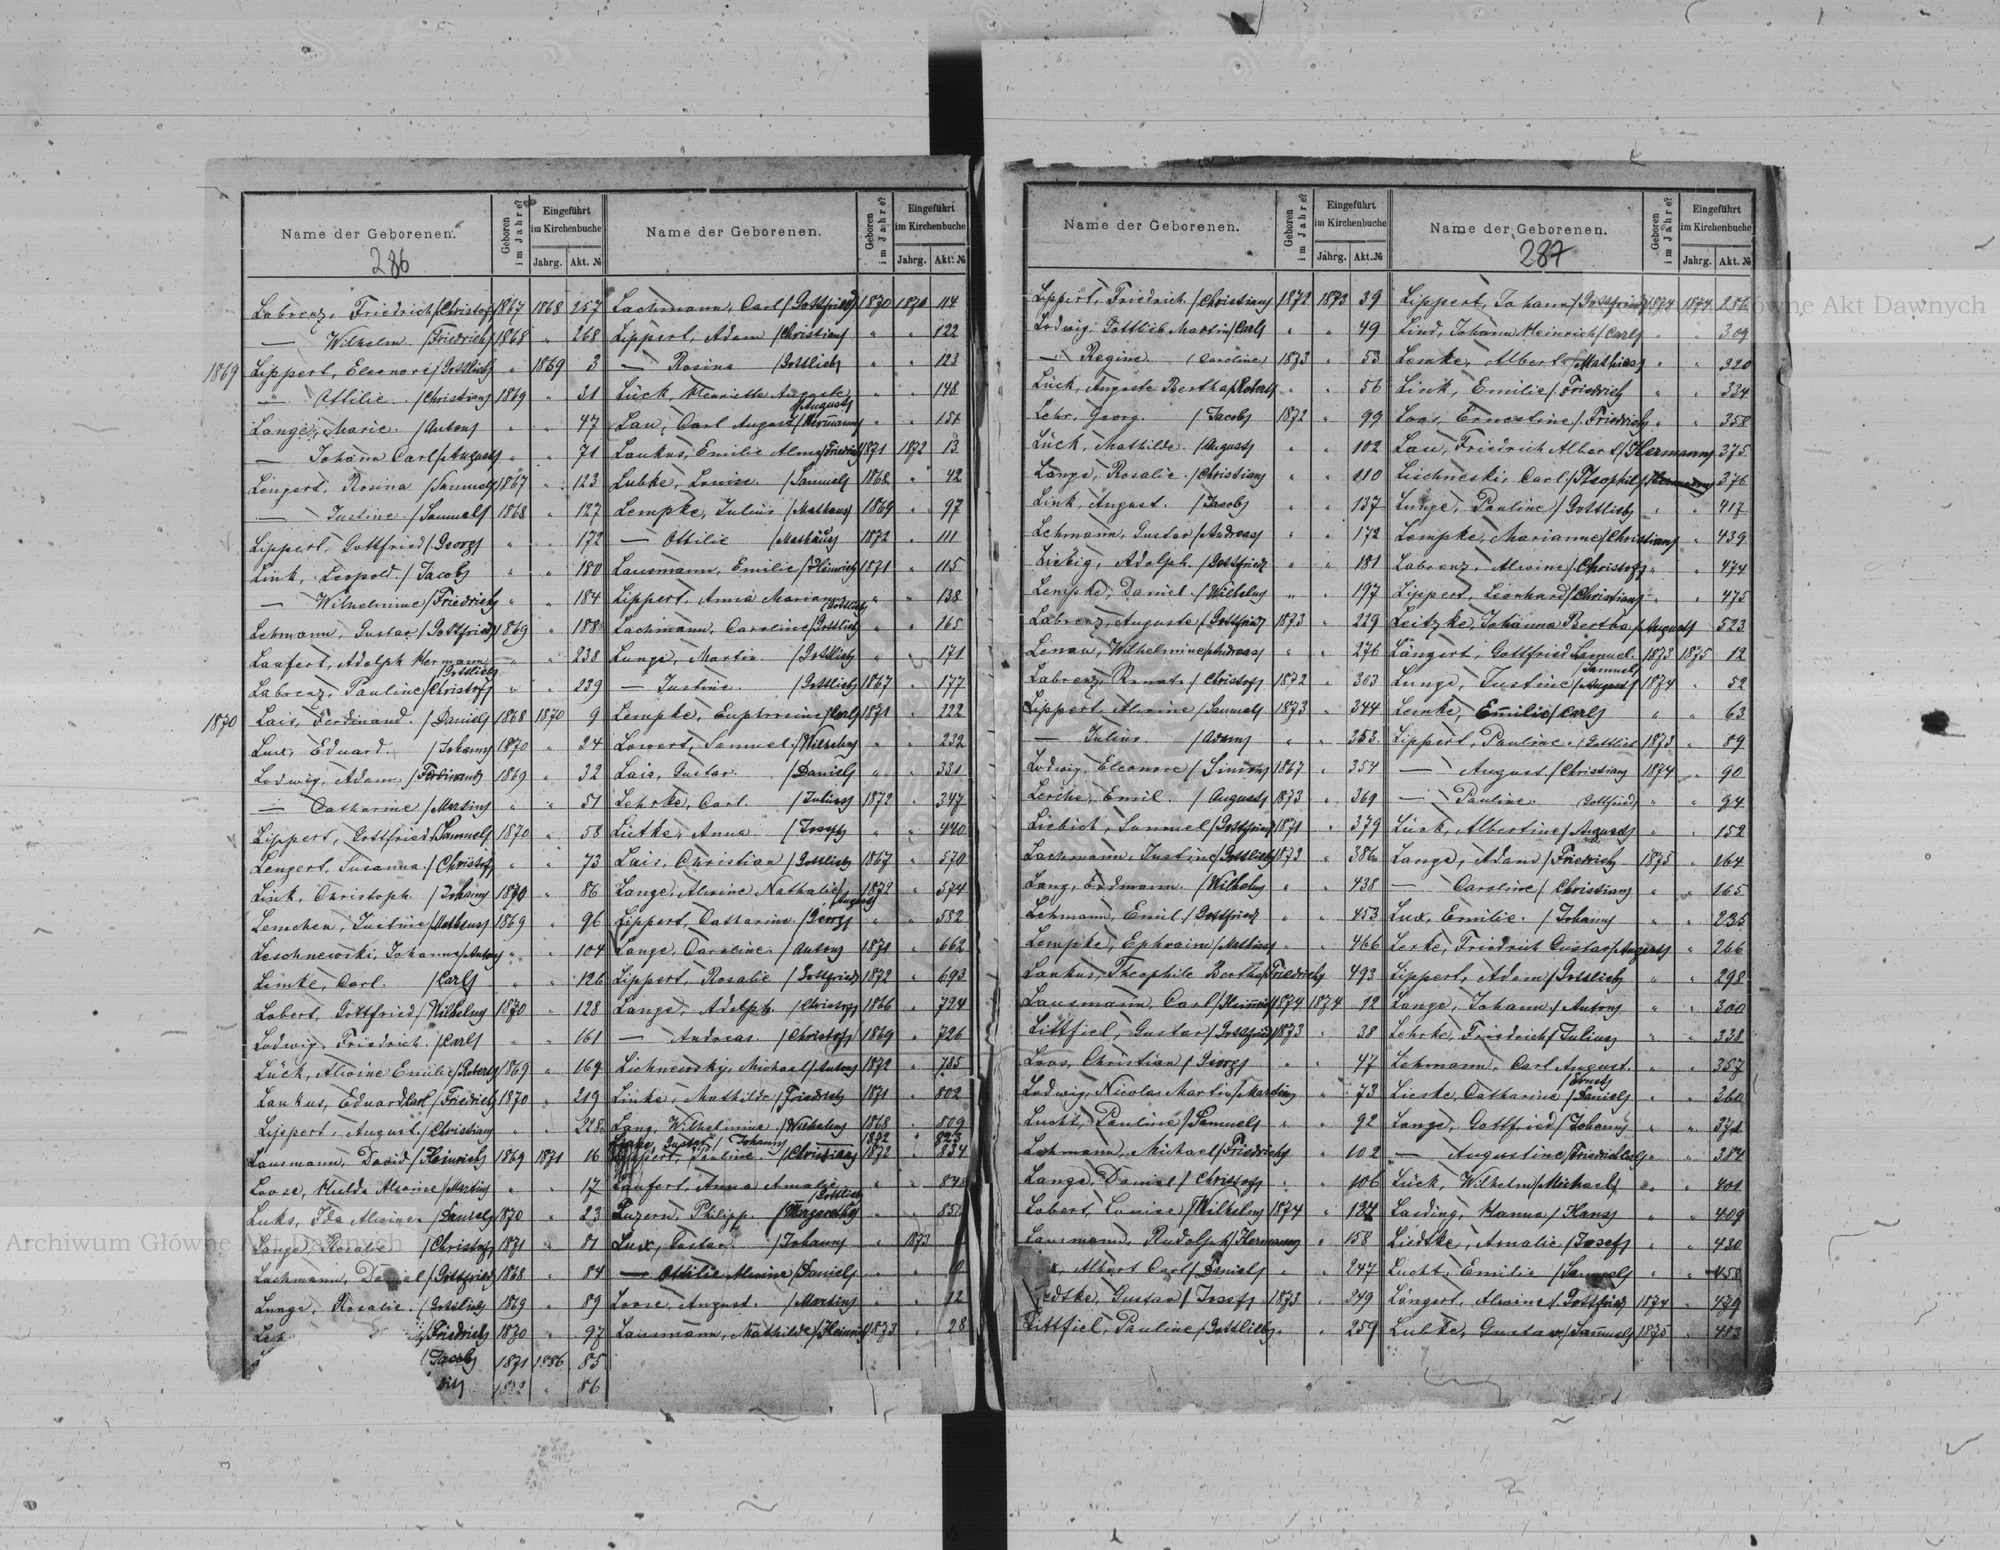 Name der Geborenen.
Geboren im Jahre?
Eingeführt im Kirchenbuche
Jahrg. Akt. №
Name der Geborenen.
Geboren im Jahre?
Eingeführt im Kirchenbuche
Jahrg. Akt. №
286
Labrenz, Friedrich /Christof/ 1867 1868 257
— Wilhelm /Friedrich/ 1868 " 268
1869 Lippert, Eleonore /Gottlieb/ " 1869 3
— Ottilie /Christian/ 1869 " 31
Lange, Marie /Anton/ " " 47
— Johann Carl /August/ " " 71
Lengert, Rosina /Samuel/ 1867 " 123
— Justine /Samuel/ 1868 " 127
Lippert, Gottfried /Georg/ " " 172
Link, Leopold /Jacob/ " " 180
— Wilhelmine /Friedrich/ " " 184
Lehmann, Gustav /Gottfried/ 1869 " 188
Laufert, Adolph Hermann /Gottlieb/ " " 238
Labrenz, Pauline /Christof/ " " 239
1870 Lais, Ferdinand /Daniel/ 1868 1870 9
Lux, Eduard /Johann/ 1870 " 24
Ludwig, Adam /Ferdinand/ 1869 " 32
— Catharine /Martin/ " " 51
Lippert, Gottfried /Samuel/ 1870 " 58
Lengert, Susanna /Christof/ " " 73
Link, Christoph /Johann/ 1870 " 86
Lemchen, Justine /Matheus/ 1869 " 96
Leschnewski, Johanna /Anton/ " " 104
Lemke, Carl /Carl/ " " 126
Lobert, Gottfried /Wilhelm/ 1870 " 128
Ludwig, Friedrich /Carl/ " " 161
Lück, Alwine Emilie /Robert/ 1869 " 169
Laukus, Eduard Carl /Friedrich/ 1870 " 219
Lippert, August /Christian/ " " 228
Lausmann, David /Heinrich/ 1869 1871 16
Loose, Hulda Alwine /Martin/ " " 17
Luks, Ida Alwine /Daniel/ 1870 " 23
Lange, Rosalie /Christof/ 1871 " 81
Lachmann, Daniel /Gottfried/ 1868 " 84
Lange, Rosalie /Gottlieb/ 1869 " 89
/Friedrich/ 1870 " 97
/Jacob/ 1871 1886 85
" 86
Lachmann, Carl /Gottfried/ 1870 1871 114
Lippert, Adam /Christian/ " " 122
— Rosina /Gottlieb/ " " 123
Lück, Henriette Auguste /August/ " " 148
Lau, Carl August /Hermann/ " " 151
Laukus, Emilie Alma /Friedrich/ 1871 1872 13
Lubke, Louise /Samuel/ 1868 " 42
Lempke, Julius /Matheus/ 1869 " 97
— Ottilie /Mathäus/ 1872 " 111
Lausmann, Emilie /Heinrich/ 1871 " 115
Lippert, Anna Marianna /Gottlieb/ " " 138
Lachmann, Caroline /Gottlieb/ " " 165
Lange, Martin /Gottlieb/ " " 171
— Justine /Gottlieb/ 1867 " 177
Lempke, Euphrosine /Carl/ 1871 " 222
Lowert, Samuel /Wilhelm/ " " 232
Lais, Gustav /Daniel/ " " 331
Lehrke, Carl /Julius/ 1872 " 347
Lietke, Anna /Josef/ " " 440
Lais, Christian /Gottlieb/ 1867 " 570
Lange, Alwine Nathalie /August/ 1872 " 574
Lippert, Catharine /Georg/ " " 582
Lange, Caroline /Anton/ 1871 " 662
Lippert, Rosalie /Gottfried/ 1872 " 693
Lange, Adolph /Christof/ 1866 " 724
— Andreas /Christof/ 1869 " 726
Lichnewsky, Michael /Anton/ 1872 " 785
Linke, Mathilde /Friedrich/ 1871 " 802
Lang, Wilhelmine /Wilhelm/ 1868 " 809
Gustav /Johann/ 1872 " 823
Lippert, Pauline /Christian/ 1872 " 834
Laufert, Anna Amalie /Gottlieb/ " " 848
Luzern, Philipp /Margaretha/ " "
Lux, Gustav /Johann/ " 1873
— Ottilie Alwine /Daniel/ " "
Loose, August /Martin/ " " 12
Lausmann, Mathilde /Heinrich/ 1873 " 28
Name der Geborenen.
Geboren im Jahre?
Eingeführt im Kirchenbuche
Jahrg. Akt. №
Name der Geborenen.
Geboren im Jahre?
Eingeführt im Kirchenbuche
Jahrg. Akt. №
287
Lippert, Friedrich /Christian/ 1872 1873 39
Ludwig, Gottlieb Martin /Carl/ " " 49
— Regine /Caroline/ 1873 " 53
Lück, Auguste Bertha /Robert/ " " 56
Lehr, Georg /Jacob/ 1872 " 99
Lück, Mathilde /August/ " " 102
Lange, Rosalie /Christian/ " " 110
Link, August /Jacob/ " " 137
Lehmann, Gustav /Andreas/ " " 172
Liebig, Adolph /Gottfried/ " " 181
Lempke, Daniel /Wilhelm/ " " 197
Labrenz, Auguste /Gottfried/ 1873 " 229
Lenau, Wilhelmine /Andreas/ " " 276
Labrenz, Renate /Christof/ 1872 " 303
Lippert, Alwine /Samuel/ 1873 " 344
— Julius /Adam/ " " 353
Ludwig, Eleonore /Simon/ 1867 " 354
Lerche, Emil /August/ 1873 " 369
Liebich, Samuel /Gottfried/ 1871 " 379
Lachmann, Justine /Gottlieb/ 1873 " 386
Lang, Erdmann /Wilhelm/ " " 438
Lehmann, Emil /Gottfried/ " " 453
Lempke, Ephraim /Mathias/ " " 466
Laukus, Theophile Bertha /Friedrich/ " 493
Lausmann, Carl /Heinrich/ 1874 1874 12
Littfiel, Gustav /Gottfried/ 1873 " 38
Loos, Christian /Georg/ " " 47
Ludwig, Nicolas Martin /Martin/ " 73
Lucht, Pauline /Samuel/ " " 92
Lehmann, Michael /Friedrich/ " 102
Lange, Daniel /Christof/ " " 106
Lobert, Louise /Wilhelm/ 1874 " 124
Lausmann, Rudolph /Hermann/ " 158
Albert Carl /Daniel/ " " 247
Liedtke, Gustav /Josef/ 1873 " 249
Littfiel, Pauline /Gottlieb/ " " 259
Lippert, Johann /Gottfried/ 1874 1874 286
Lind, Johann Heinrich /Carl/ " " 309
Lemke, Albert /Mathias/ " " 320
Link, Emilie /Friedrich/ " " 334
Loos, Ernestine /Friedrich/ " " 358
Lau, Friedrich Albert /Hermann/ 375
Lischneski, Carl /Theophil/ 376
Lange, Pauline /Gottlieb/ " " 417
Lempke, Marianne /Christian/ " 439
Labrenz, Alwine /Christof/ " " 474
Lippert, Leonhard /Christian/ " " 475
Leitzke, Johanna Bertha /August/ 523
Längert, Gottfried Samuel /Samuel/ 1873 1875 12
Lange, Justine /August/ 1874 " 52
Lemke, Emilie /Carl/ " " 63
Lippert, Pauline /Gottlieb 1873 " 89
— August /Christian/ 1874 " 90
— Pauline Gottfried/ " " 94
Lück, Albertine /August/ " " 152
Lange, Adam /Friedrich/ 1875 " 164
— Caroline /Christian/ " " 165
Lux, Emilie /Johann/ " " 235
Lerke, Friedrich Gustav /August/ " 266
Lippert, Adam /Gottlieb/ " " 298
Lange, Johann /Anton/ " " 300
Lehrke, Friedrich /Julius/ " " 338
Lehmann, Carl August /Ernst/ " " 357
Lieske, Catharine /Daniel/ " " 360
Lange, Gottfried /Johann/ " " 371
— Augustine /Friedrich Carl/ " " 384
Lück, Wilhelm /Michael/ " " 401
Laeding, Hanna /Hans/ " " 409
Liedtke, Amalie /Josef/ " " 430
Lucht, Emilie /Samuel/ " " 458
Längert, Alwine /Gottfried/ 1874 " 479
Lubke, Gustav /Samuel/ 1875 " 483
Archiwum Główne Akt Dawnych
Główne Akt Dawnych